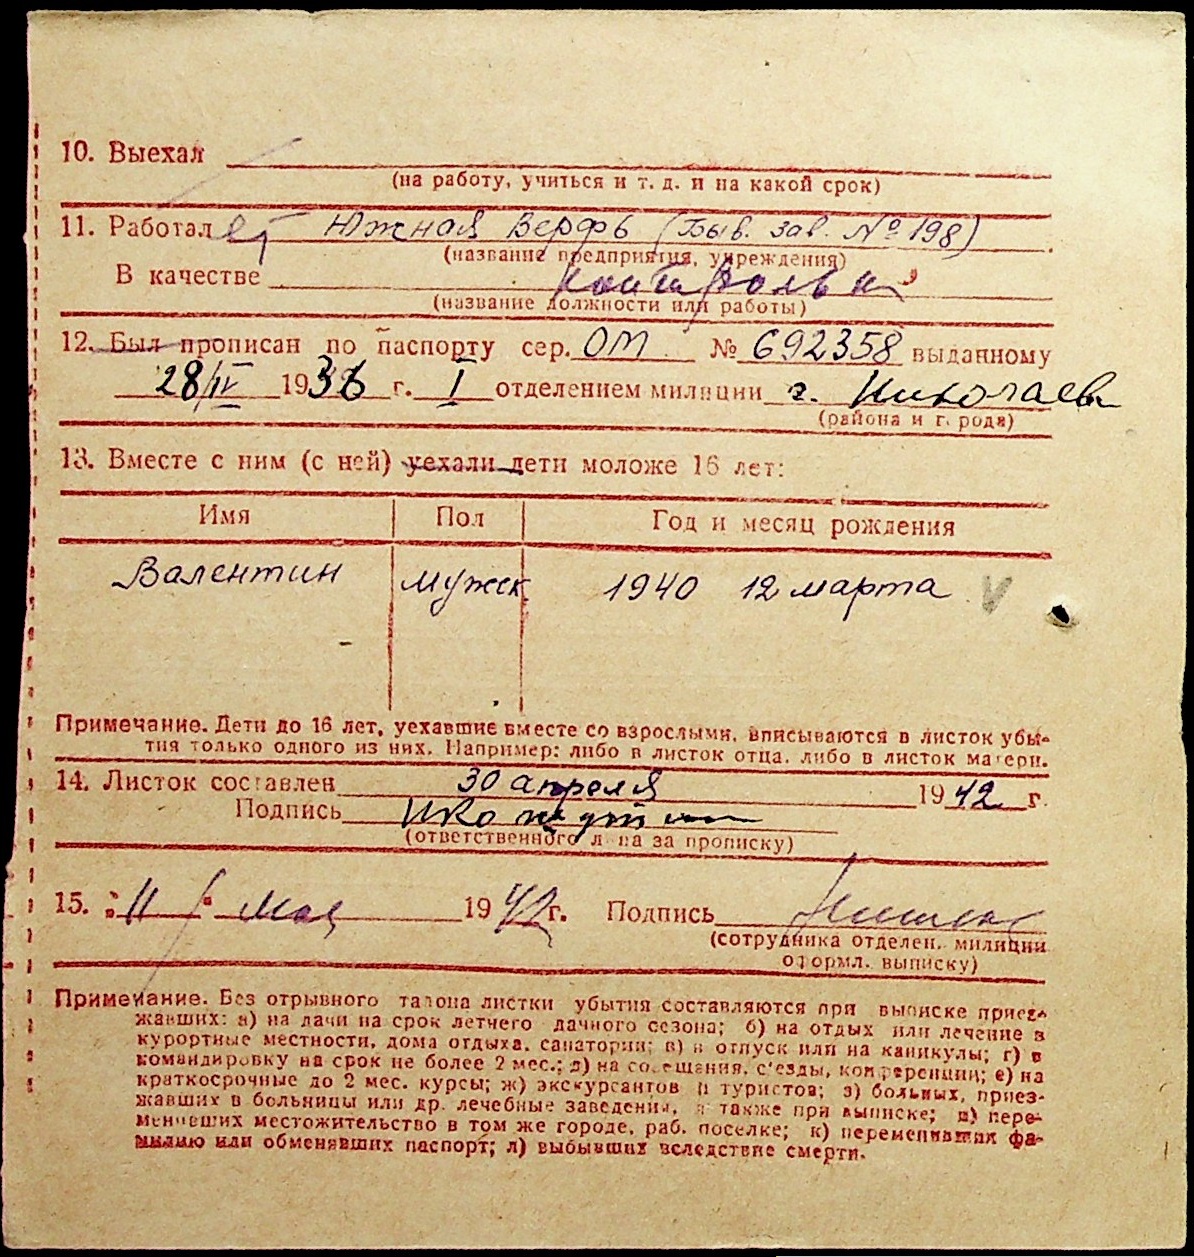 10. Выехал
(на работу, учиться и т. д. и на какой срок)
11. Работает Южная Верфь (Быв. зав. № 198)
(название предприятия, учреждения)
В качестве
(название должности или работы)
12. Был прописан по паспорту сер. ОМ № 692358 выданному
28/IV 1936 г. I отделением милиции г. Николаев
(района и города)
13. Вместе с ним (с ней) уехали дети моложе 16 лет:
Имя Пол Год и месяц рождения
Валентин мужск 1940 12 марта V
Примечание. Дети до 16 лет, уехавшие вместе со взрослыми, вписываются в листок убы-
тия только одного из них. Например: либо в листок отца, либо в листок матери.
14. Листок составлен 30 апреля 1942 г.
Подпись
(ответственного лица за прописку)
15. "11" Мая 1942 г. Подпись
(сотрудника отделен. милиции
оформл. выписку)
Примечание. Без отрывного талона листки убытия составляются при выписке приез-
жавших: а) на дачи на срок летнего дачного сезона; б) на отдых или лечение в
курортные местности, дома отдыха, санатории; в) в отпуск или на каникулы; г) в
командировку на срок не более 2 мес.; д) на совещания, с'езды, конференции; е) на
краткосрочные до 2 мес. курсы; ж) экскурсантов и туристов; з) больных, приез-
жавших в больницы или др. лечебные заведения, а также при выписке; и) пере-
менивших местожительство в том же городе, раб. поселке; к) переменивших фа-
милию или обменявших паспорт; л) выбывших вследствие смерти.